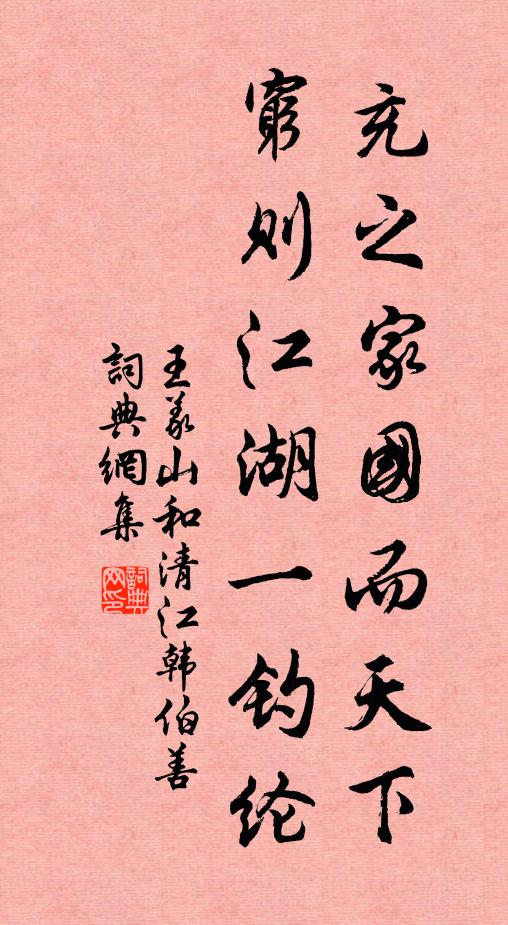 充之家國而天下
窮则江湖一钓纶
王义山和清江韩伯善
詞典網集
詞典网印